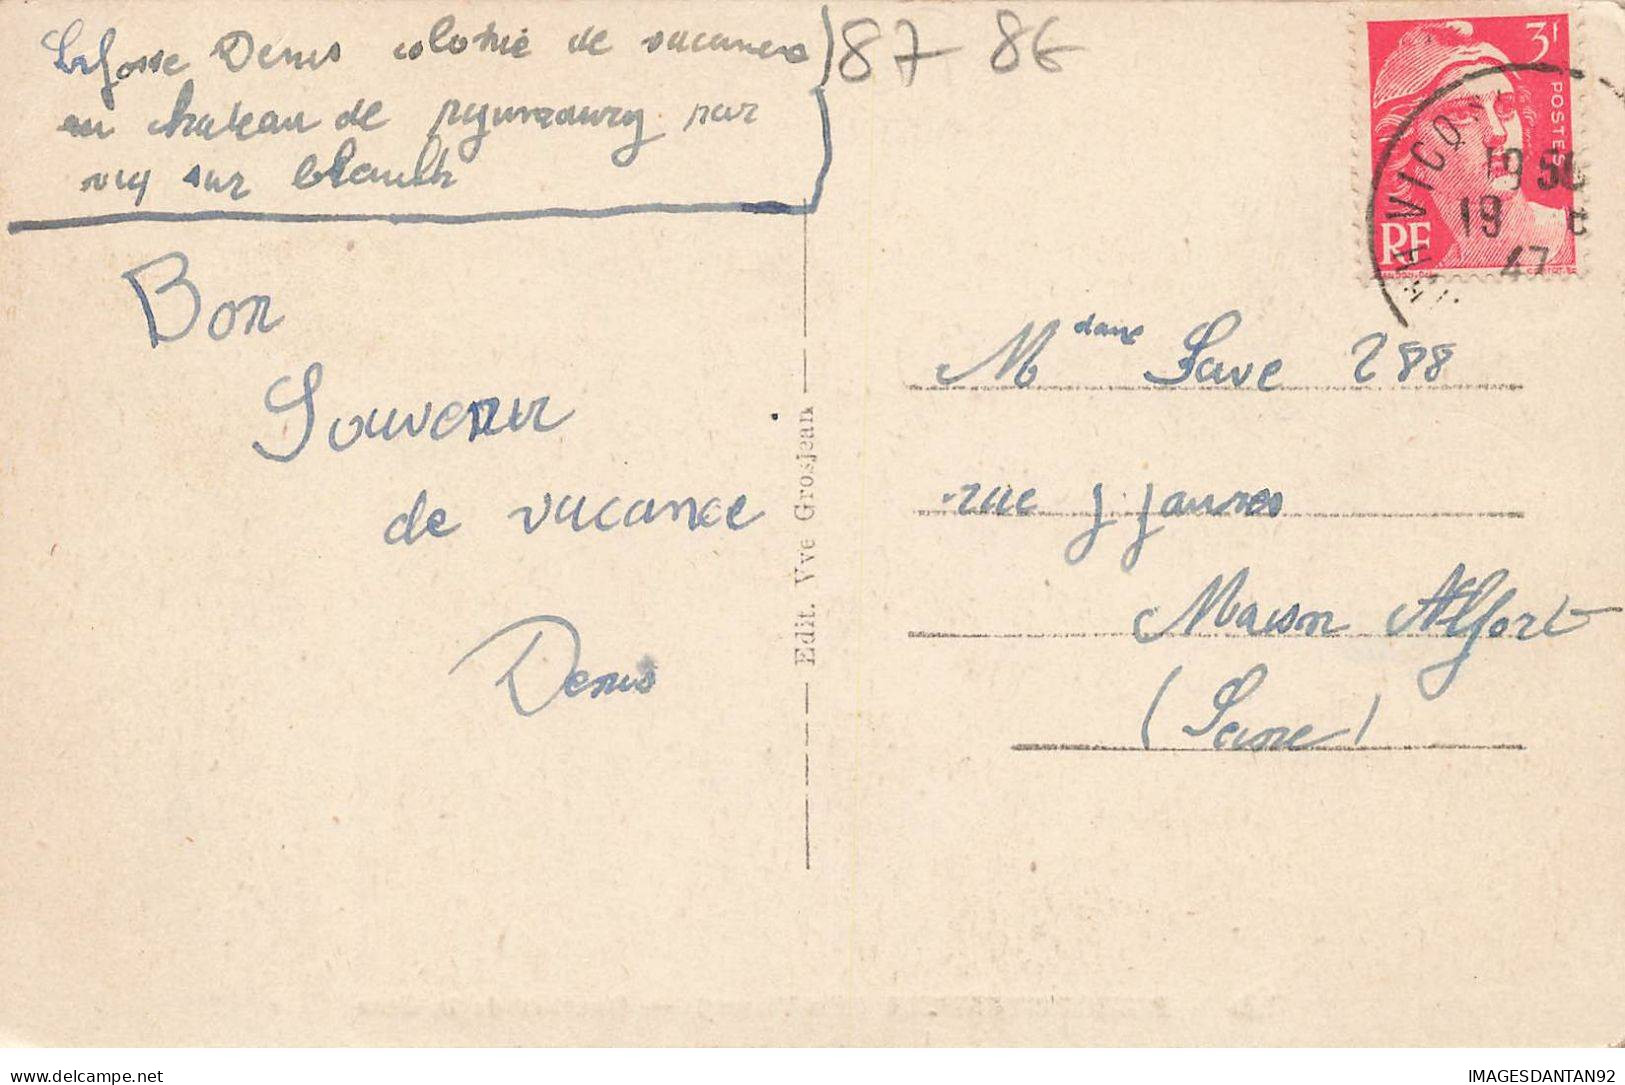 Lafosse Denis colonie de vacances
au chateau de par
sur
87 86
3F
POSTES
RF
19 50
19 8
47
Bon
Souvenir
de vacance
Denis
Edit. Vve Grosjean
Mdame Save 288
rue J. Jaures
Maison Alfort
(Seine)
IMAGESDANTAN92